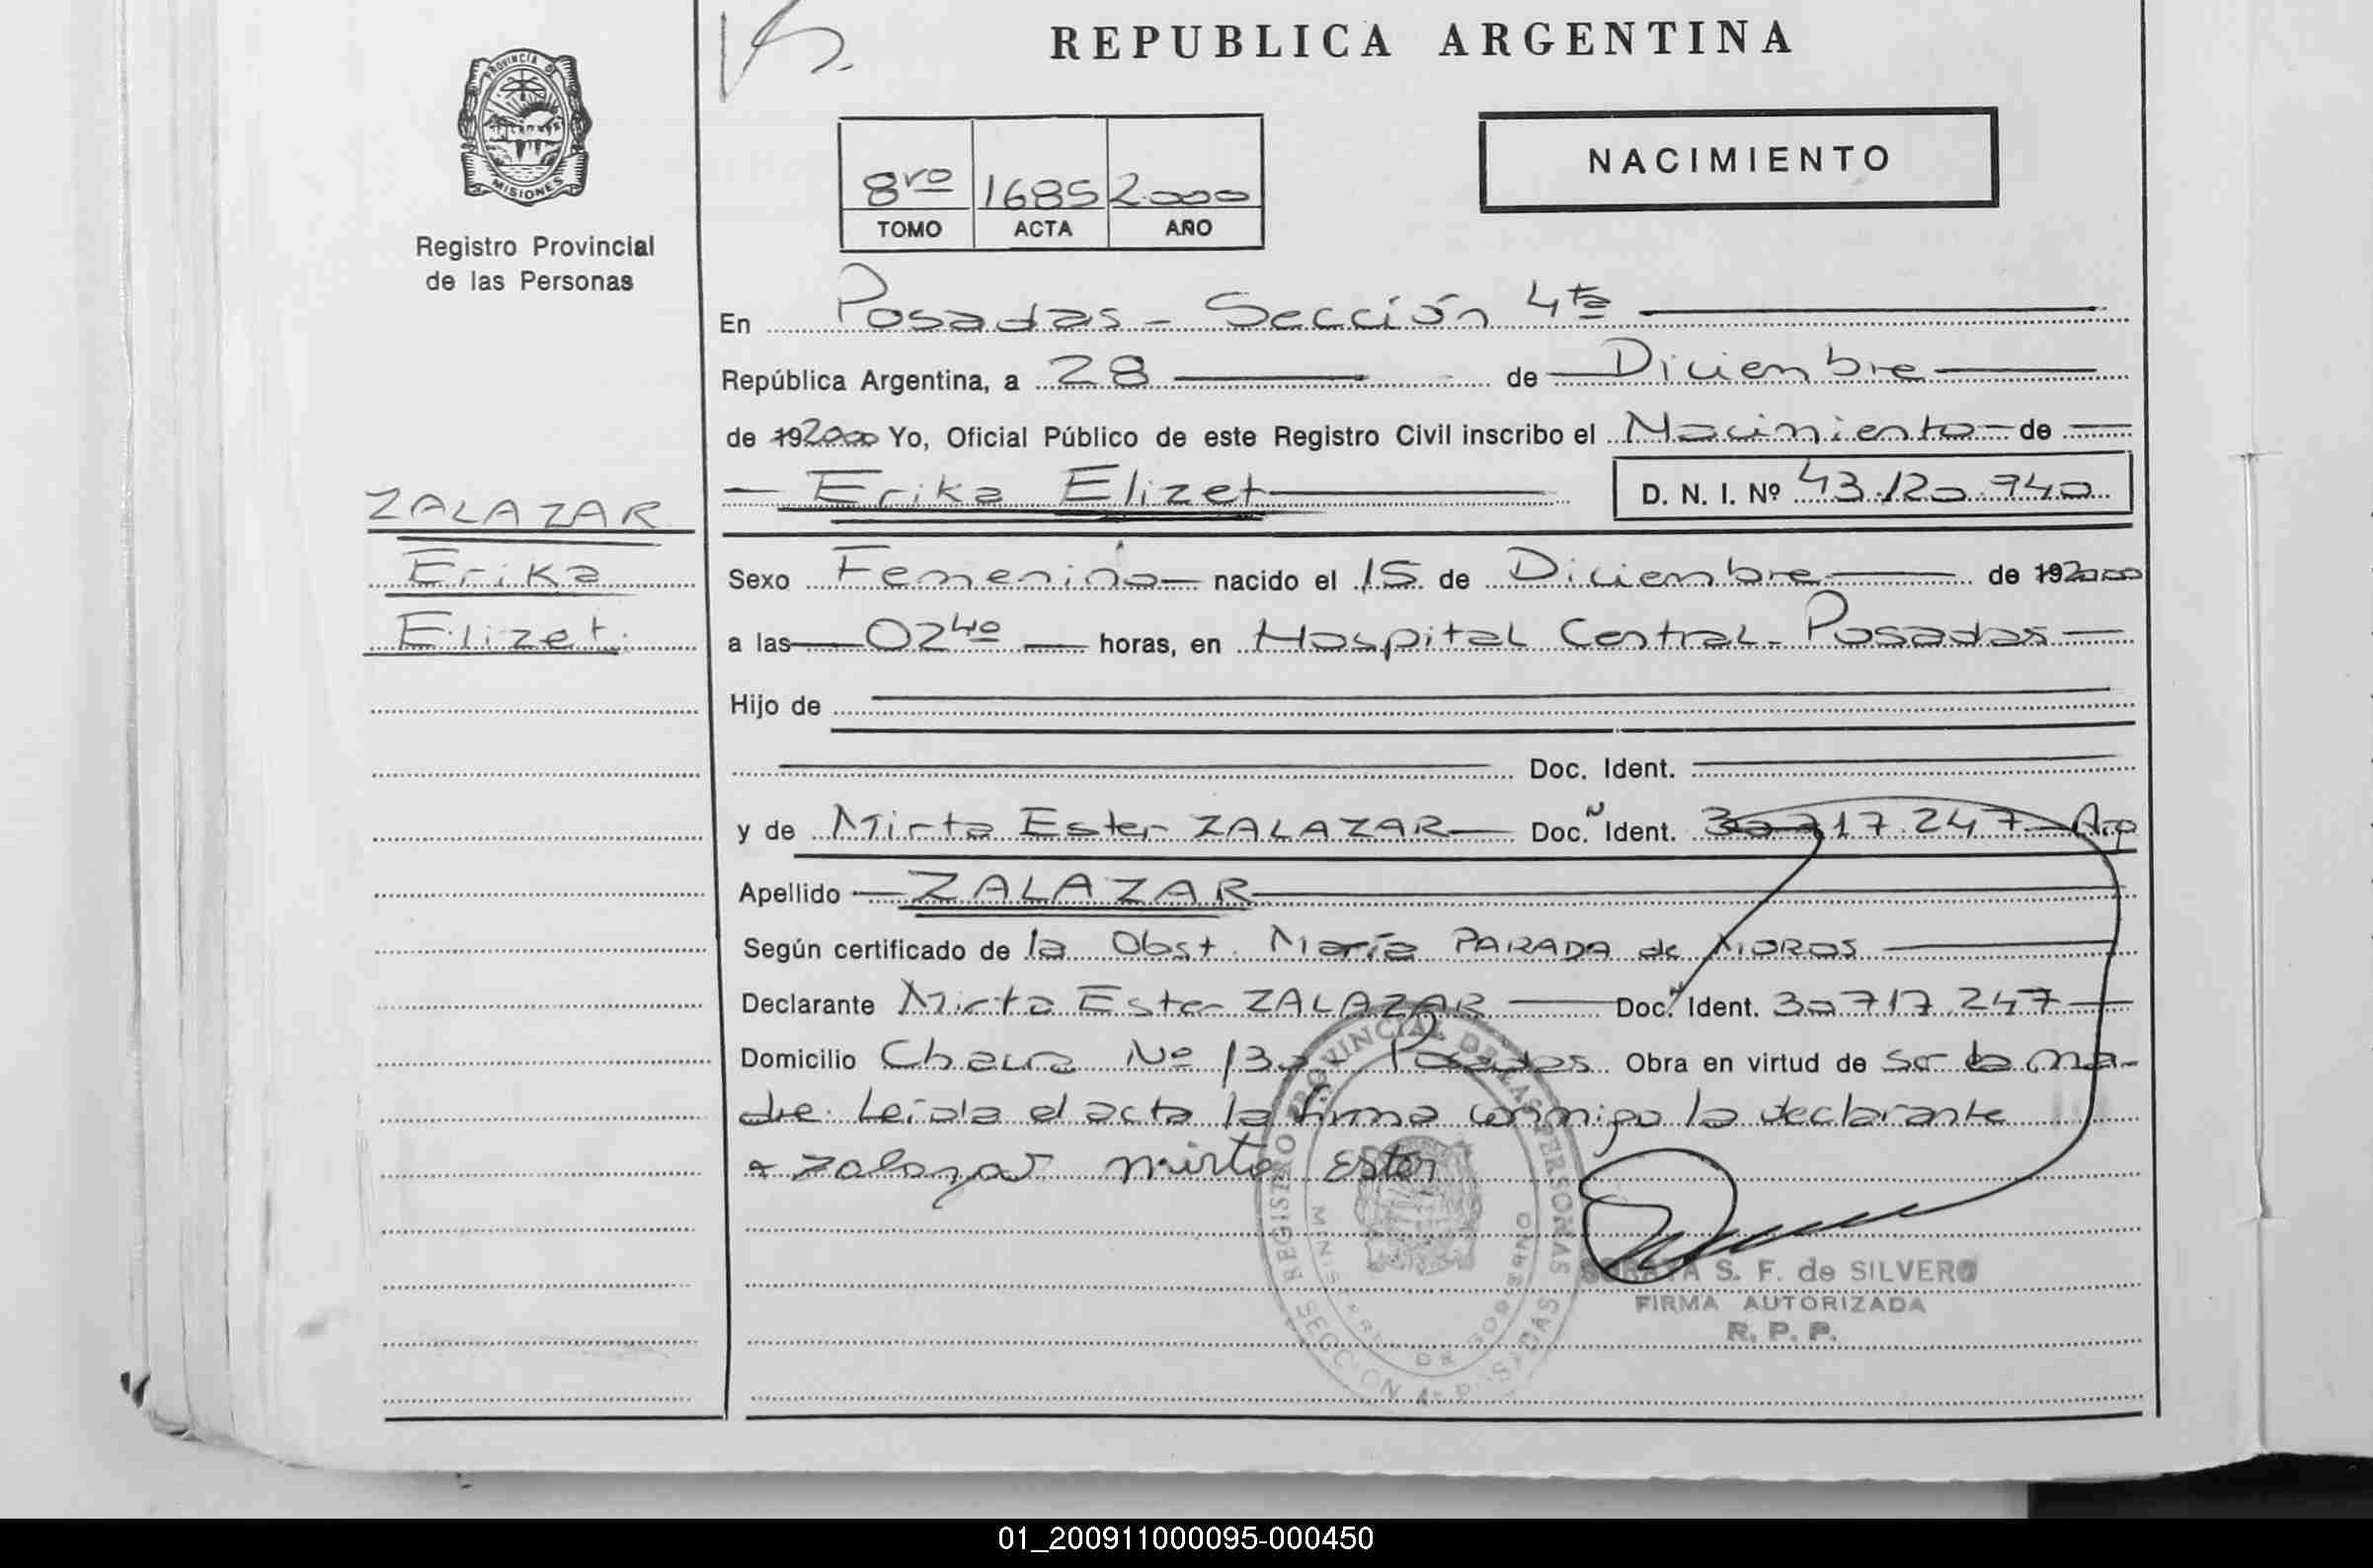 REPUBLICA ARGENTINA
PROVINCIA DE
MISIONES
Registro Provincial
de las Personas
NACIMIENTO
8vo 1685 2.000
TOMO ACTA AÑO
En Posadas - Sección 4ta
República Argentina, a 28 de Diciembre
de 192000 Yo, Oficial Público de este Registro Civil inscribo el Nacimiento de
Erika Elizet D. N. I. Nº 43.120.940
ZALAZAR
Erika
Elizet.
Sexo Femenino nacido el 15 de Diciembre de 192000
a las 02 40 horas, en Hospital Central - Posadas
Hijo de
Doc. Ident.
y de Mirta Ester ZALAZAR Doc. Ident. 30717.247 Arg
Apellido ZALAZAR
Según certificado de la Obst. María PARADA de MOROS
Declarante Mirta Ester ZALAZAR Doc. Ident. 30717.247
Domicilio Chacra Nº 130 - Posadas Obra en virtud de ser la ma-
dre. Leída el acta la firma conmigo la declarante
Zalazar mirta Ester
REGISTRO PROVINCIAL DE LAS PERSONAS
MINISTERIO DE GOBIERNO
SECCION 4- POSADAS
SORAYA S. F. de SILVERO
FIRMA AUTORIZADA
R. P. P.
01_200911000095-000450